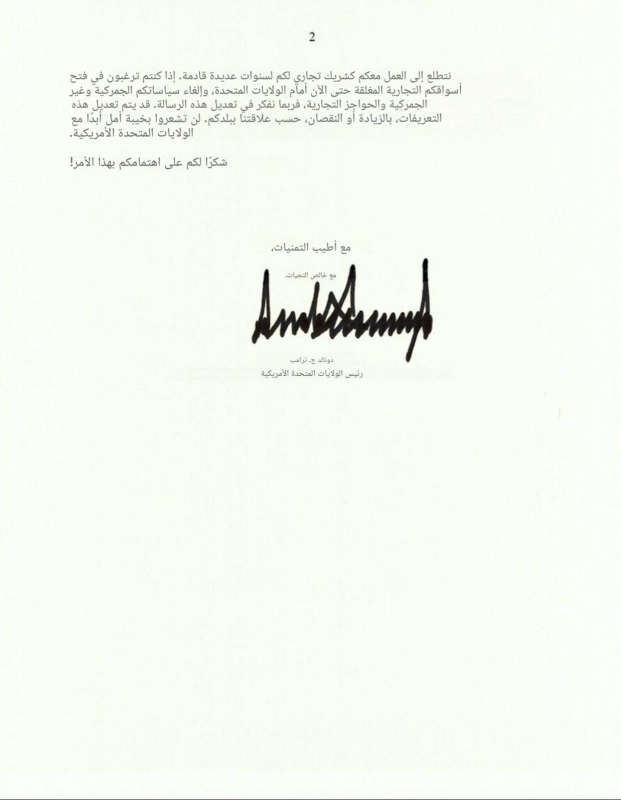 2
نتطلع إلى العمل معكم كشريك تجاري لكم لسنوات عديدة قادمة. إذا كنتم ترغبون في فتح
أسواقكم التجارية المغلقة حتى الآن أمام الولايات المتحدة، وإلغاء سياساتكم الجمركية وغير
الجمركية والحواجز التجارية، فربما نفكر في تعديل هذه الرسالة. قد يتم تعديل هذه
التعريفات، بالزيادة أو النقصان، حسب علاقتنا ببلدكم. لن تشعروا بخيبة أمل أبدًا مع
الولايات المتحدة الأمريكية.
شكرًا لكم على اهتمامكم بهذا الأمر!
مع أطيب التمنيات،
مع خالص التحيات،
دونالد ج. ترامب
رئيس الولايات المتحدة الأمريكية